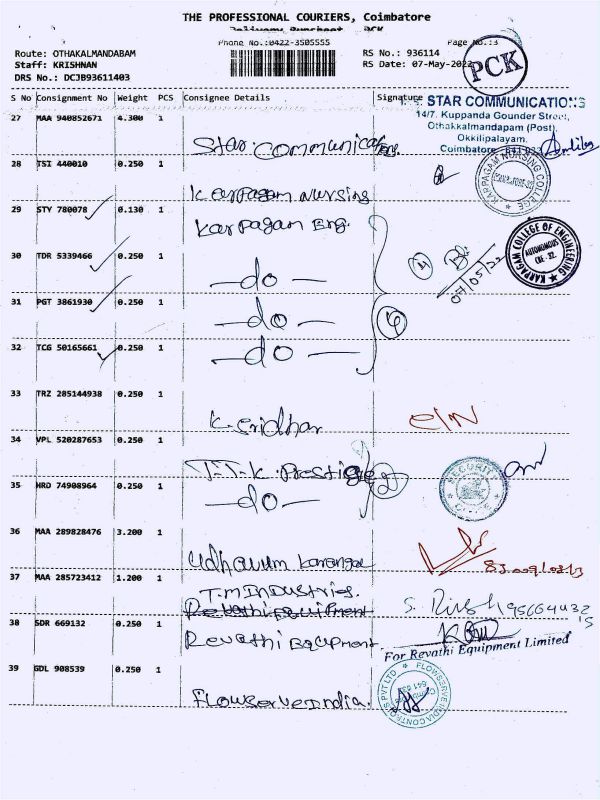 THE PROFESSIONAL COURIERS, Coimbatore
Delivery Runsheet PCK
Phone No.:0422-3505555
Page No.13
Route: OTHAKALMANDABAM
RS No.: 936114
Staff: KRISHNAN
RS Date: 07-May-2022
DRS No.: DCJB93611403
PCK
S No Consignment No Weight PCS Consignee Details Signature
STAR COMMUNICATIONS
14/7. Kuppanda Gounder Street,
Othakkalmandapam (Post),
Okkilipalayam,
Coimbatore
27 MAA 940852671 4.300 1 Star Communications
28 TSI 440010 0.250 1 Karpagam Nursing
KARPAGAM NURSING COLLEGE
29 STY 780078 0.130 1 Karpagam Eng.
KARPAGAM COLLEGE OF ENGINEERING
AUTONOMOUS
CBE. 32.
30 TDR 5339466 0.250 1 —do—
07/05/22
31 PGT 3861930 0.250 1 —do—
32 TCG 50165661 0.250 1 —do—
33 TRZ 285144938 0.250 1 K. Sridhar
34 VPL 520287653 0.250 1 T.T.K. Prestige
SECURITY
35 HRO 74908964 0.250 1 —do—
36 MAA 289828476 3.200 1 Udhavum Karangal
37 MAA 285723412 1.200 1 T.M Industries.
Revathi Equipment
38 SDR 669132 0.250 1 Revathi Equipment
For Revathi Equipment Limited
39 GDL 908539 0.250 1 Flowserve India.
FLOWSERVE INDIA CONTROLS PVT LTD